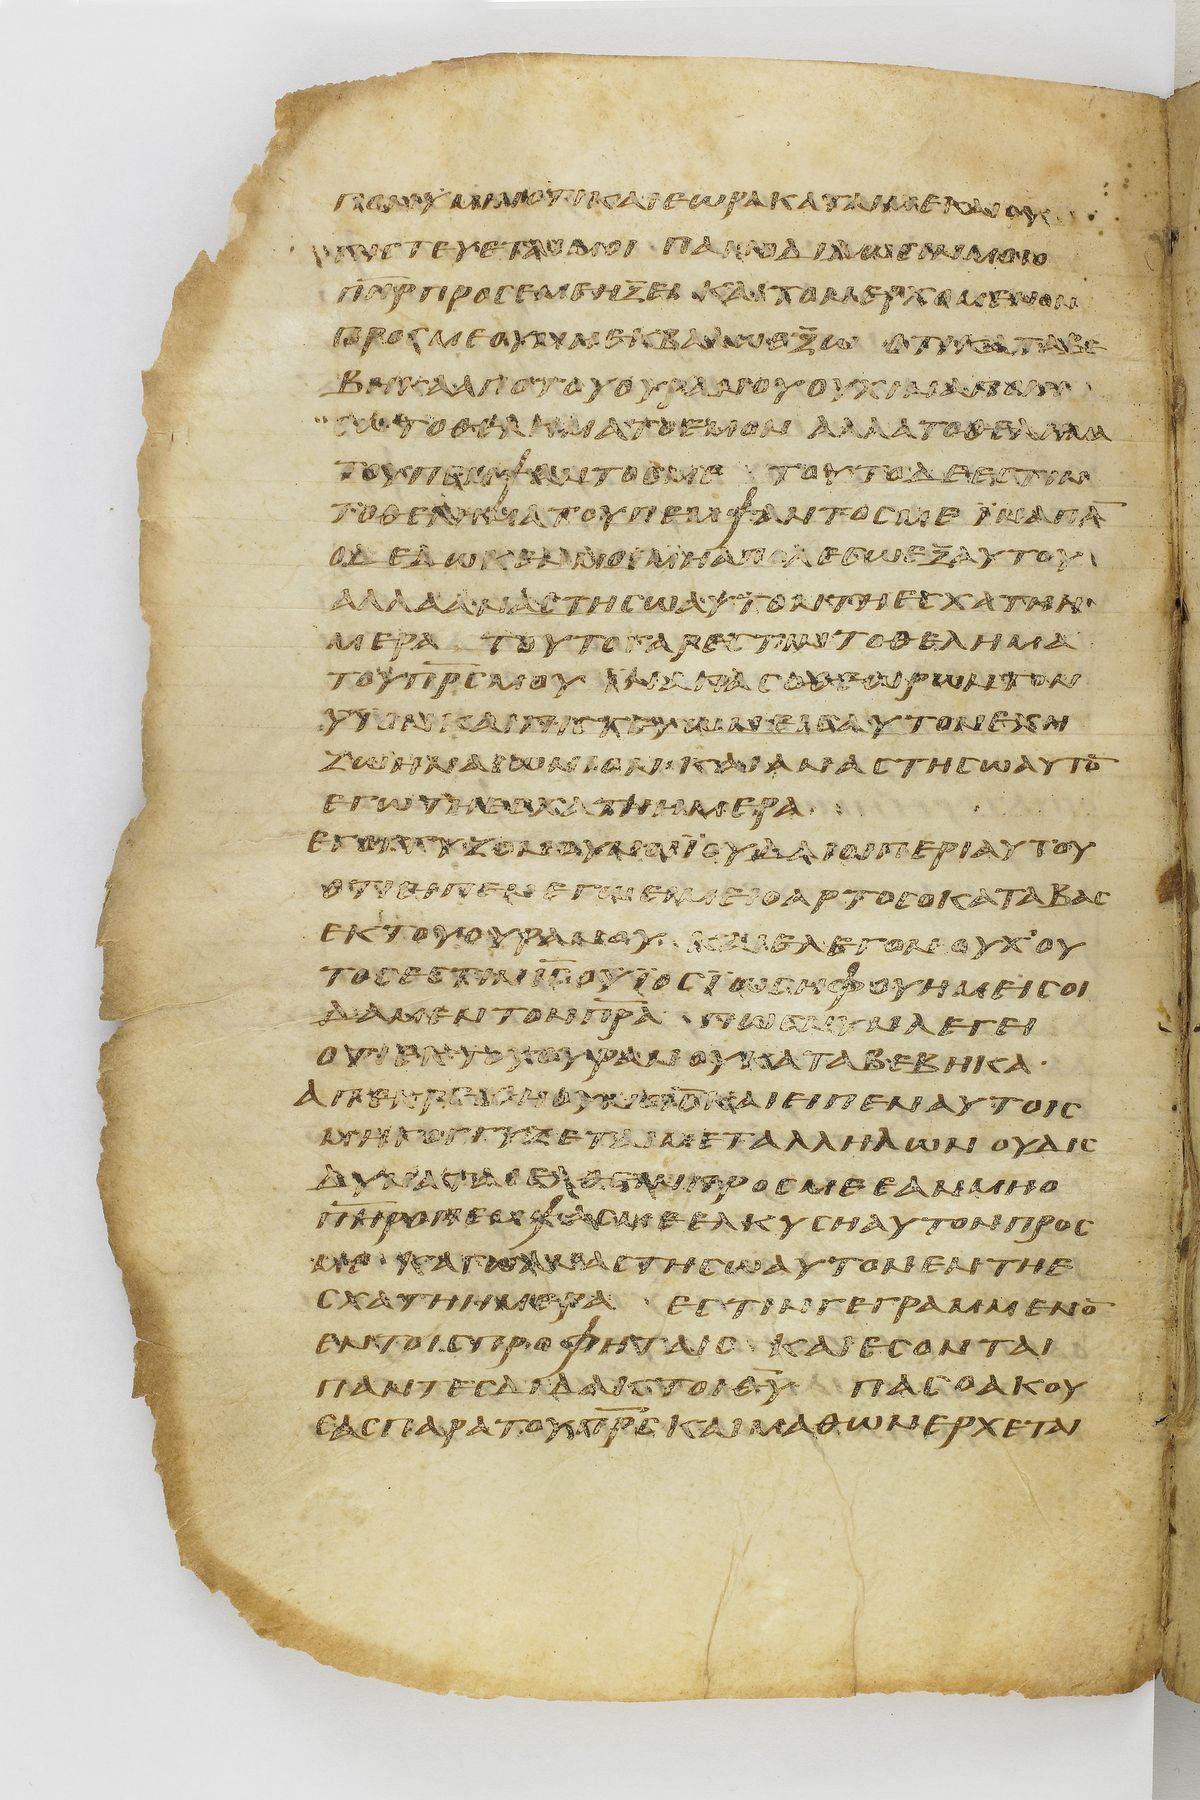 ΠΟΝΥΜΙΝΟΤΙΚΑΙΕΩΡΑΚΑΤΑΙΜΕΚΑΙΟΥ
ΠΙΣΤΕΥΕΤΑΙΜΟΙ ΠΑΝΟΔΙΔΩΣΙΝΜΟΙΟ
ΠΗΡΠΡΟϹΕΜΕΗΞΕΙ ΚΑΙΤΟΝΕΡΧΟΜΕΝΟΝ
ΠΡΟϹΜΕΟΥΜΗΕΚΒΑΛΩΕΞΩ ΟΤΙΚΑΤΑΒΕ
ΒΗΚΑΑΠΟΤΟΥΟΥΡΑΝΟΥΟΥΧΙΝΑΠΟΙΩ
ΤΟΘΕΛΗΜΑΤΟΕΜΟΝ ΑΛΛΑΤΟΘΕΛΗΜΑ
ΤΟΥΠΕΜΨΑΝΤΟϹΜΕ ΤΟΥΤΟΔΕΕϹΤΙΝ
ΤΟΘΕΛΗΜΑΤΟΥΠΕΜΨΑΝΤΟϹΜΕ ΪΝΑΠΑ̅
ΟΔΕΔΩΚΕΝΜΟΙΜΗΑΠΟΛΕϹΩΕΞΑΥΤΟΥ
ΑΛΛΑΑΝΑϹΤΗϹΩΑΥΤΟΝΤΗΕϹΧΑΤΗΗ
ΜΕΡΑ ΤΟΥΤΟΓΑΡΕϹΤΙΝΤΟΘΕΛΗΜΑ
ΤΟΥΠ̅Ρ̅Ϲ̅ΜΟΥ ΪΝΑΠΑϹΟΘΕΩΡΩΝΤΟΝ
ΥΙΟΝΚΑΙΠΙϹΤΕΥΩΝΕΙϹΑΥΤΟΝΕΧΗ
ΖΩΗΝΑΙΩΝΙΟΝ ΚΑΙΑΝΑϹΤΗϹΩΑΥΤΟ̅
ΕΓΩΤΗΕϹΧΑΤΗΗΜΕΡΑ
ΕΓΟΓΓΥΖΟΝΟΥΝΟΙΪΟΥΔΑΙΟΙΠΕΡΙΑΥΤΟΥ
ΟΤΙΕΙΠΕΝΕΓΩΕΙΜΕΙΟΑΡΤΟϹΟΚΑΤΑΒΑϹ
ΕΚΤΟΥΟΥΡΑΝΟΥ ΚΑΙΕΛΕΓΟΝΟΥΧΟΥ
ΤΟϹΕϹΤΙΝΙ̅Ϲ̅ΟΥΪΟϹΪΩϹΗΦΟΥΗΜΕΙϹΟΙ
ΔΑΜΕΝΤΟΝΠ̅Ρ̅Α̅ ΠΩϹΝΥΝΛΕΓΕΙ
ΟΤΙΕΚΤΟΥΟΥΡΑΝΟΥΚΑΤΑΒΕΒΗΚΑ
ΑΠΕΚΡΙΘΗΟΥΝΙ̅Ϲ̅ΚΑΙΕΙΠΕΝΑΥΤΟΙϹ
ΜΗΓΟΓΓΥΖΕΤΑΙΜΕΤΑΛΛΗΛΩΝ ΟΥΔΙϹ
ΔΥΝΑΤΑΙΕΛΘΕΙΝΠΡΟϹΜΕΕΑΝΜΗΟ
Π̅Η̅Ρ̅ΟΠΕΜΨΑϹΜΕΕΛΚΥϹΗΑΥΤΟΝΠΡΟϹ
ΜΕ ΚΑΓΩΑΝΑϹΤΗϹΩΑΥΤΟΝΕΝΤΗΕ
ϹΧΑΤΗΗΜΕΡΑ ΕϹΤΙΝΓΕΓΡΑΜΜΕΝΟ̅
ΕΝΤΟΙϹΠΡΟΦΗΤΑΙϹ ΚΑΙΕϹΟΝΤΑΙ
ΠΑΝΤΕϹΔΙΔΑΚΤΟΙΘ̅Υ̅ ΠΑϹΟΑΚΟΥ
ϹΑϹΠΑΡΑΤΟΥΠ̅Ρ̅Ϲ̅ΚΑΙΜΑΘΩΝΕΡΧΕΤΑΙ